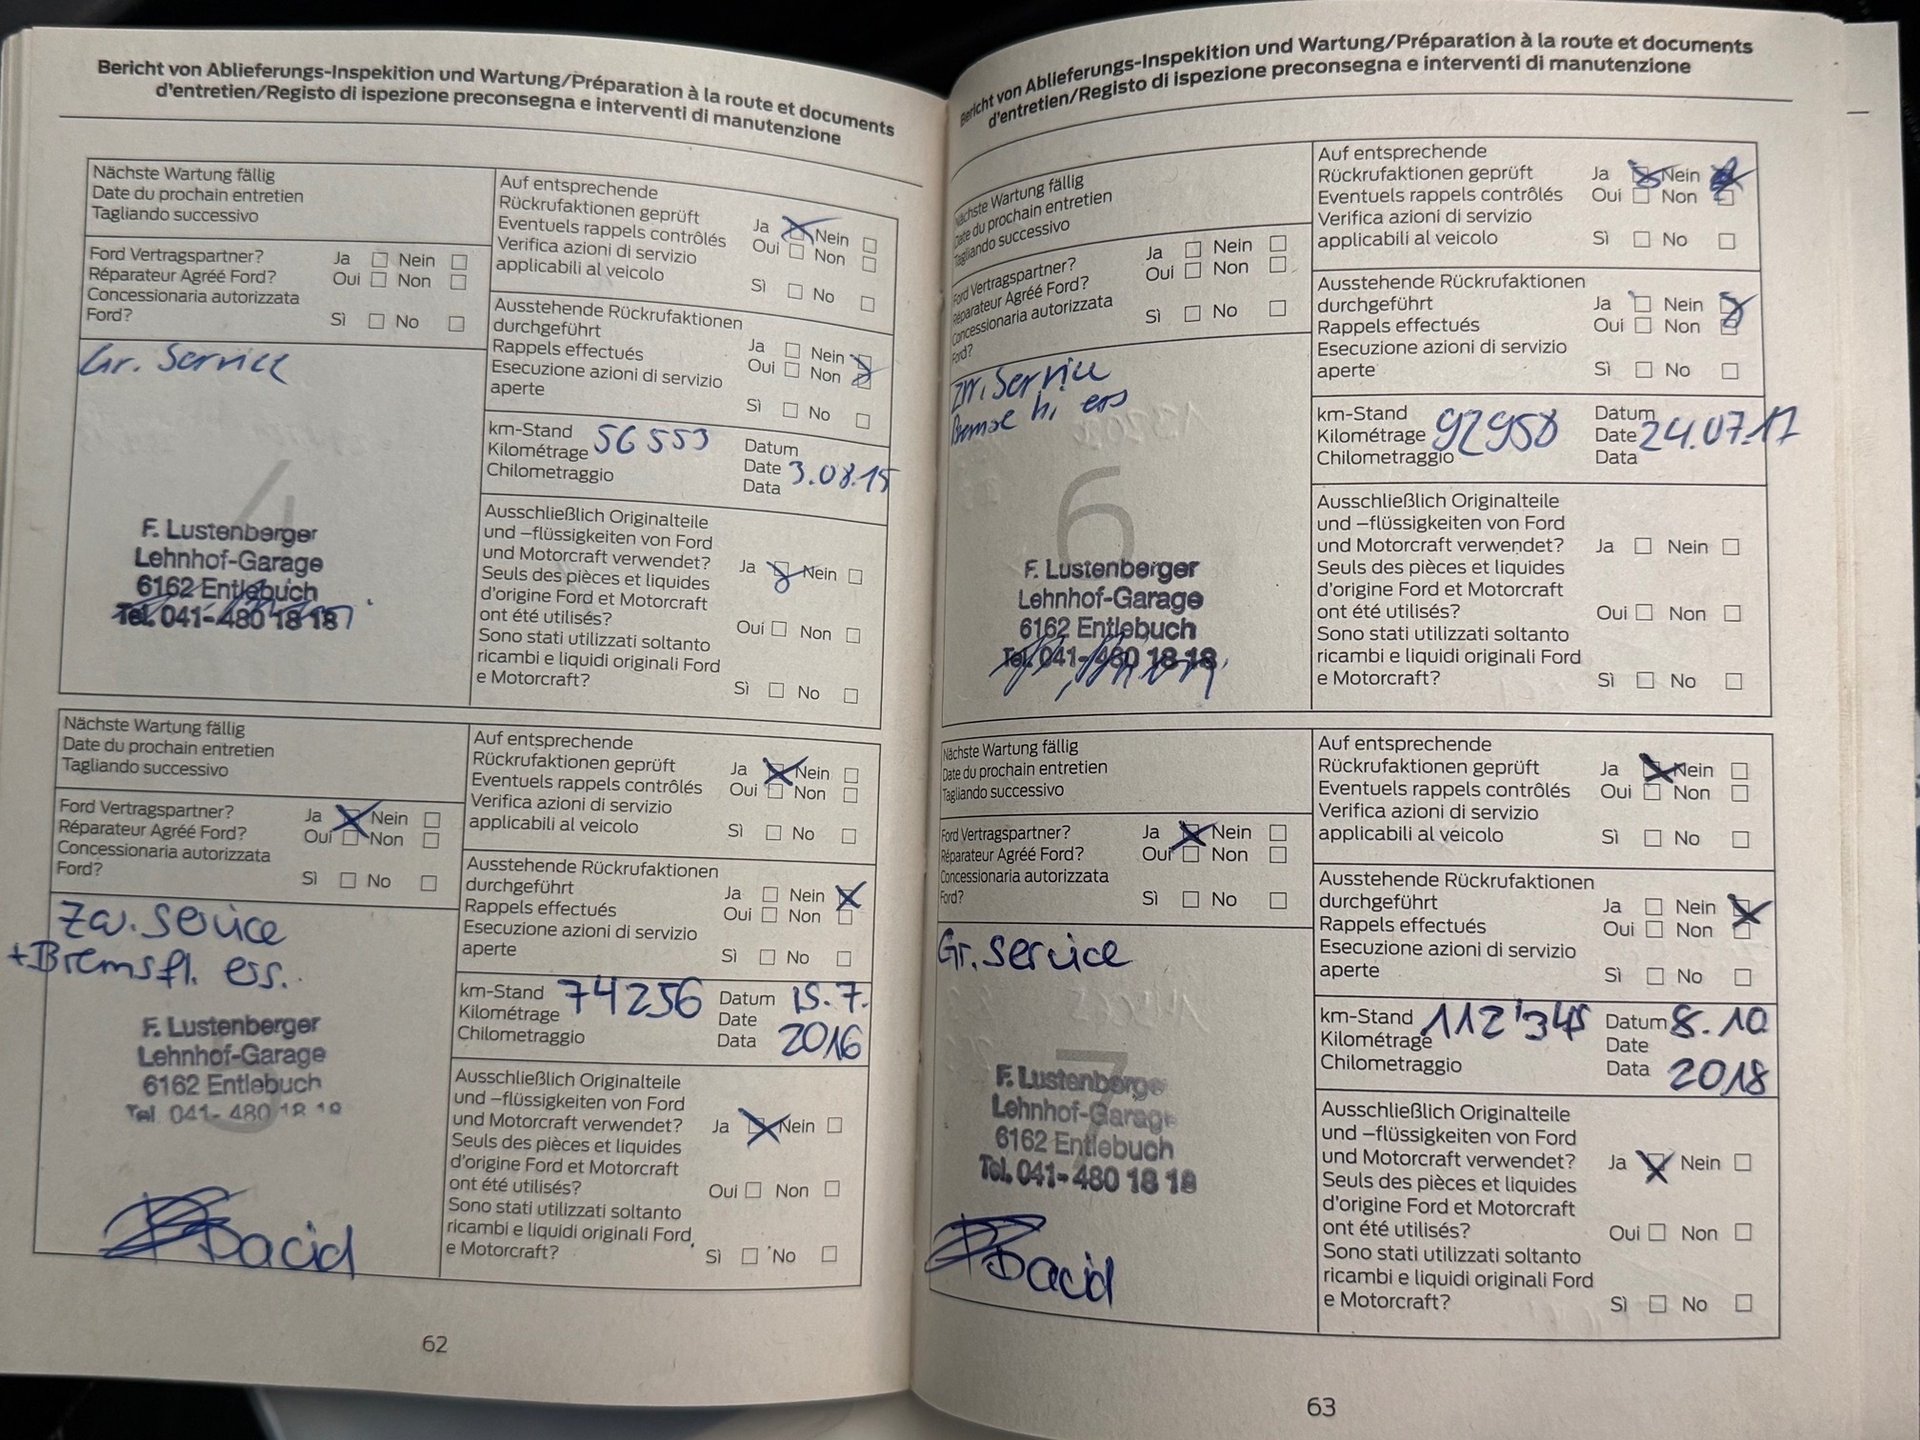 Bericht von Ablieferungs-Inspekition und Wartung/Préparation à la route et documents
d'entretien/Registo di ispezione preconsegna e interventi di manutenzione
Nächste Wartung fällig
Date du prochain entretien
Tagliando successivo
Ford Vertragspartner? Ja Nein
Réparateur Agréé Ford? Oui Non
Concessionaria autorizzata
Ford? Sì No
Gr. Service
4
F. Lustenberger
Lehnhof-Garage
6162 Entlebuch
Tel. 041-480 18 18
Auf entsprechende
Rückrufaktionen geprüft Ja Nein
Eventuels rappels contrôlés Oui Non
Verifica azioni di servizio
applicabili al veicolo Sì No
Ausstehende Rückrufaktionen
durchgeführt Ja Nein
Rappels effectués Oui Non
Esecuzione azioni di servizio
aperte Sì No
km-Stand 56553 Datum
Kilométrage Date 3.08.15
Chilometraggio Data
Ausschließlich Originalteile
und –flüssigkeiten von Ford
und Motorcraft verwendet? Ja Nein
Seuls des pièces et liquides
d'origine Ford et Motorcraft
ont été utilisés? Oui Non
Sono stati utilizzati soltanto
ricambi e liquidi originali Ford
e Motorcraft? Sì No
Nächste Wartung fällig
Date du prochain entretien
Tagliando successivo
Ford Vertragspartner? Ja Nein
Réparateur Agréé Ford? Oui Non
Concessionaria autorizzata
Ford? Sì No
Zw. Service
+Bremsfl. ers.
F. Lustenberger
Lehnhof-Garage
6162 Entlebuch
Tel. 041-480 18 18
5
David
Auf entsprechende
Rückrufaktionen geprüft Ja Nein
Eventuels rappels contrôlés Oui Non
Verifica azioni di servizio
applicabili al veicolo Sì No
Ausstehende Rückrufaktionen
durchgeführt Ja Nein
Rappels effectués Oui Non
Esecuzione azioni di servizio
aperte Sì No
km-Stand 74256 Datum 15.7.
Kilométrage Date
Chilometraggio Data 2016
Ausschließlich Originalteile
und –flüssigkeiten von Ford
und Motorcraft verwendet? Ja Nein
Seuls des pièces et liquides
d'origine Ford et Motorcraft
ont été utilisés? Oui Non
Sono stati utilizzati soltanto
ricambi e liquidi originali Ford
e Motorcraft? Sì No
62
Bericht von Ablieferungs-Inspekition und Wartung/Préparation à la route et documents
d'entretien/Registo di ispezione preconsegna e interventi di manutenzione
Nächste Wartung fällig
Date du prochain entretien
Tagliando successivo
Ford Vertragspartner? Ja Nein
Réparateur Agréé Ford? Oui Non
Concessionaria autorizzata
Ford? Sì No
Zw. Service
Bremse hi ers
6
F. Lustenberger
Lehnhof-Garage
6162 Entlebuch
Tel. 041-480 18 18
Auf entsprechende
Rückrufaktionen geprüft Ja Nein
Eventuels rappels contrôlés Oui Non
Verifica azioni di servizio
applicabili al veicolo Sì No
Ausstehende Rückrufaktionen
durchgeführt Ja Nein
Rappels effectués Oui Non
Esecuzione azioni di servizio
aperte Sì No
km-Stand 92950 Datum
Kilométrage Date 24.07.17
Chilometraggio Data
Ausschließlich Originalteile
und –flüssigkeiten von Ford
und Motorcraft verwendet? Ja Nein
Seuls des pièces et liquides
d'origine Ford et Motorcraft
ont été utilisés? Oui Non
Sono stati utilizzati soltanto
ricambi e liquidi originali Ford
e Motorcraft? Sì No
Nächste Wartung fällig
Date du prochain entretien
Tagliando successivo
Ford Vertragspartner? Ja Nein
Réparateur Agréé Ford? Oui Non
Concessionaria autorizzata
Ford? Sì No
Gr. Service
7
F. Lustenberger
Lehnhof-Garage
6162 Entlebuch
Tel. 041-480 18 18
David
Auf entsprechende
Rückrufaktionen geprüft Ja Nein
Eventuels rappels contrôlés Oui Non
Verifica azioni di servizio
applicabili al veicolo Sì No
Ausstehende Rückrufaktionen
durchgeführt Ja Nein
Rappels effectués Oui Non
Esecuzione azioni di servizio
aperte Sì No
km-Stand 112'345 Datum 8.10
Kilométrage Date
Chilometraggio Data 2018
Ausschließlich Originalteile
und –flüssigkeiten von Ford
und Motorcraft verwendet? Ja Nein
Seuls des pièces et liquides
d'origine Ford et Motorcraft
ont été utilisés? Oui Non
Sono stati utilizzati soltanto
ricambi e liquidi originali Ford
e Motorcraft? Sì No
63